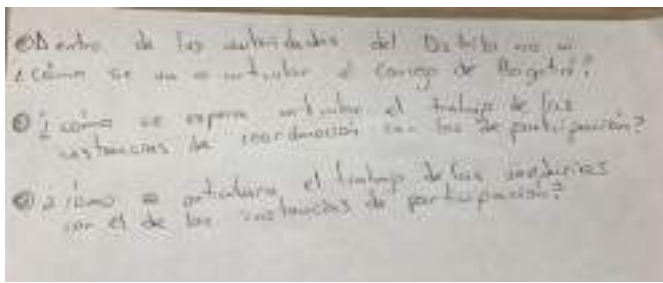 Dentro de las autoridades del Distrito no
¿cómo se va a articular el Concejo de Bogotá?
¿cómo se espera articular el trabajo de las
instancias de coordinación con las de participación?
¿cómo se articulara el trabajo de las veedurías
con el de las instancias de participación?